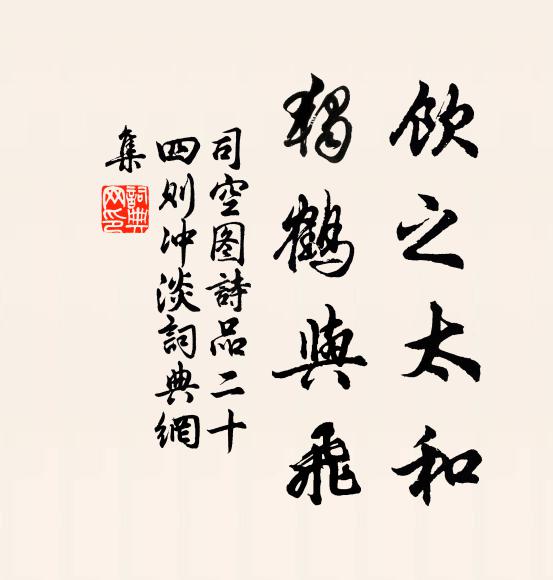 飲之太和
獨鶴與飛
司空图詩品二十
四则冲淡詞典網
集
詞典
网印